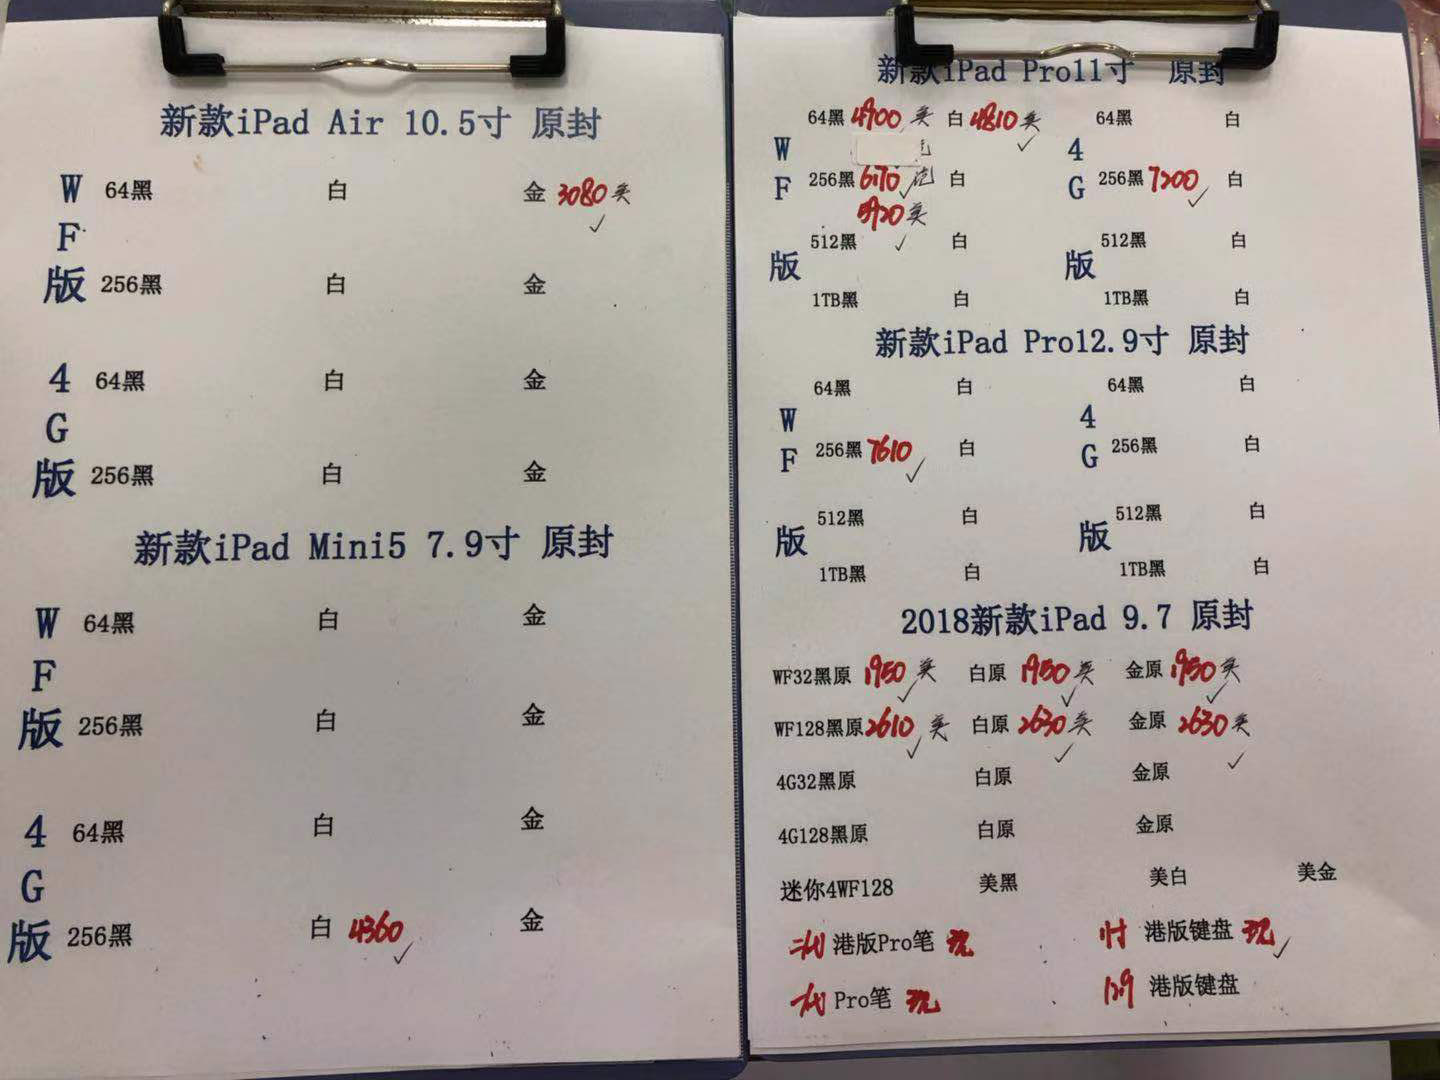 新款iPad Air 10.5寸 原封
WF版
64黑 白 金 3080 美
256黑 白 金
4G版
64黑 白 金
256黑 白 金
新款iPad Mini5 7.9寸 原封
WF版
64黑 白 金
256黑 白 金
4G版
64黑 白 金
256黑 白 4360 金
新款iPad Pro11寸 原封
WF版
64黑 4900 美 白 4810 美
256黑 6170 港 白
5920 美
512黑 白
1TB黑 白
4G版
64黑 白
256黑 7200 白
512黑 白
1TB黑 白
新款iPad Pro12.9寸 原封
WF版
64黑 白
256黑 7610 白
512黑 白
1TB黑 白
4G版
64黑 白
256黑 白
512黑 白
1TB黑 白
2018新款iPad 9.7 原封
WF32黑原 1950 美 白原 1950 美 金原 1950 美
WF128黑原 2610 美 白原 2630 美 金原 2630 美
4G32黑原 白原 金原
4G128黑原 白原 金原
迷你4WF128 美黑 美白 美金
二代 港版Pro笔 现 11寸 港版键盘 现
一代 Pro笔 现 12.9 港版键盘